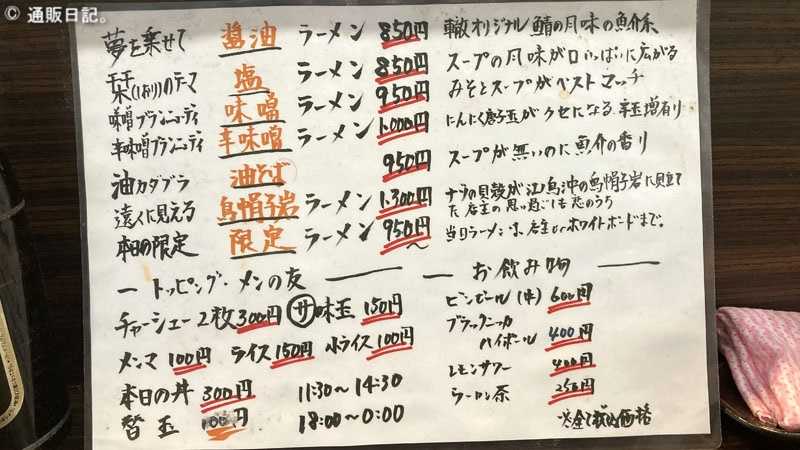 © 通販日記。
夢を乗せて 醤油 ラーメン 850円 轍オリジナル 鯖の風味の魚介系
栞(しおり)のテーマ 塩 ラーメン 850円 スープの風味が口いっぱいに広がる
味噌ブランニューデイ 味噌 ラーメン 950円 みそとスープがベストマッチ
辛味噌ブランニューデイ 辛味噌 ラーメン 1.000円 にんにく唐子玉がクセになる 辛玉増有り
油カダブラ 油そば 950円 スープが無いのに魚介の香り
遠くに見える 烏帽子岩 ラーメン 1.300円 ナラの貝殻が江ノ島沖の烏帽子岩に見立て
た 店主の思い過ごしも恋のうち
本日の限定 限定 ラーメン 950円〜 当日ラーメンは、店主orホワイトボードまで。
ー トッピング・メンの友 ー
チャーシュー2枚 300円 サ味玉 150円
メンマ 100円 ライス 150円 小ライス 100円
本日の丼 300円 11:30〜14:30
替玉 100円 18:00〜0:00
ー お飲み物 ー
ビンビール (中) 600円
ブラックニッカ
ハイボール 400円
レモンサワー 400円
ウーロン茶 250円
※全て税込価格